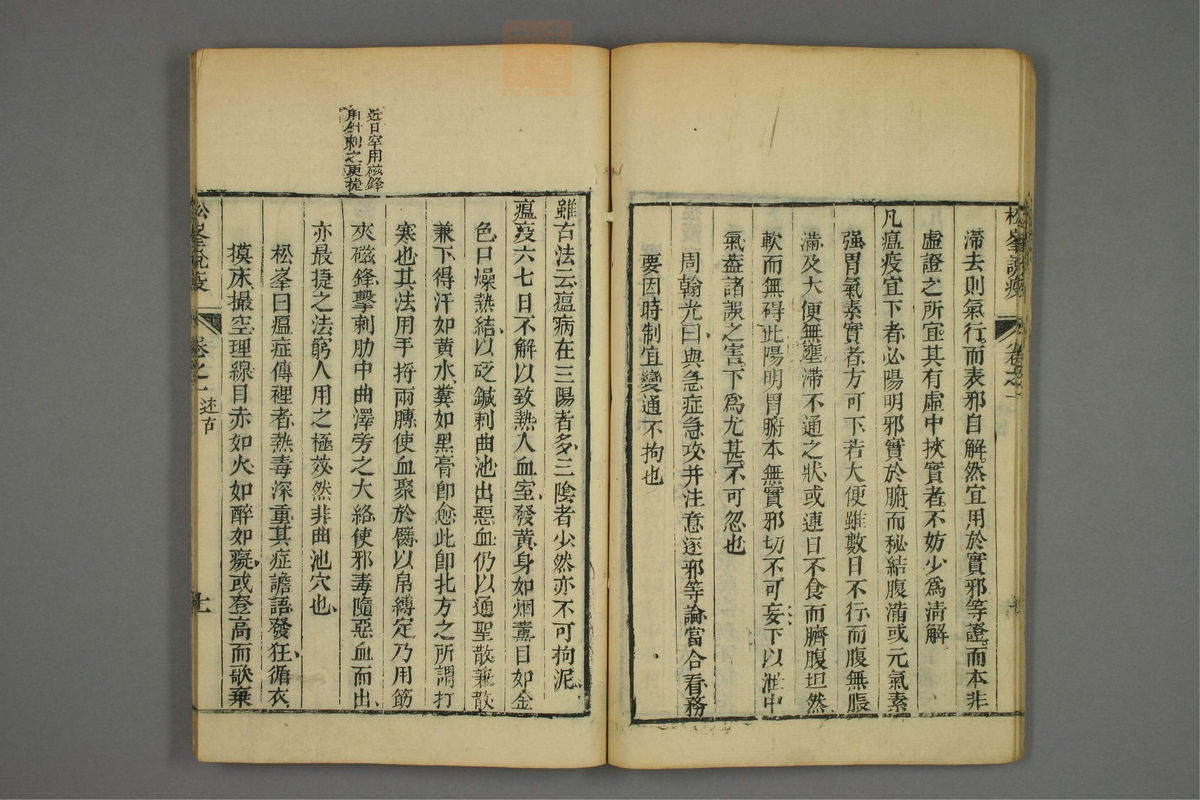 滯去則氣行而表邪自解然宜用於實邪等證而本非
虛證之所宜其有虛中挾實者不妨少爲清解
凡瘟疫宜下者必陽明邪實於腑而秘結腹滿或元氣素
强胃氣素實者方可下若大便雖數日不行而腹無脹
滿及大便無壅滯不通之狀或連日不食而臍腹坦然
軟而無碍此陽明胃腑本無實邪切不可妄下以泄中
氣蓋諸誤之害下爲尤甚不可忽也
周翰光曰與急症急攻并注意逐邪等論當合看務
要因時制宜變通不拘也
松峯說疫
卷之一
近日罕用磁鋒
用針刺之更捷
雖古法云瘟病在三陽者多三陰者少然亦不可拘泥
瘟疫六七日不解以致熱入血室發黃身如烟薰目如金
色口燥熱結以砭鍼刺曲池出惡血仍以通聖散兼散
兼下得汗如黃水糞如黑膏卽愈此卽北方之所謂打
寒也其法用手捋兩膊使血聚於臂以帛縛定乃用筯
夾磁鋒擊刺肋中曲澤旁之大絡使邪毒隨惡血而出
亦最捷之法窮人用之極效然非曲池穴也
松峯曰瘟症傳裡者熱毒深重其症譫語發狂循衣
摸床撮空理線目赤如火如醉如癡或登高而歌棄
松峯說疫
卷之一
述古
十一